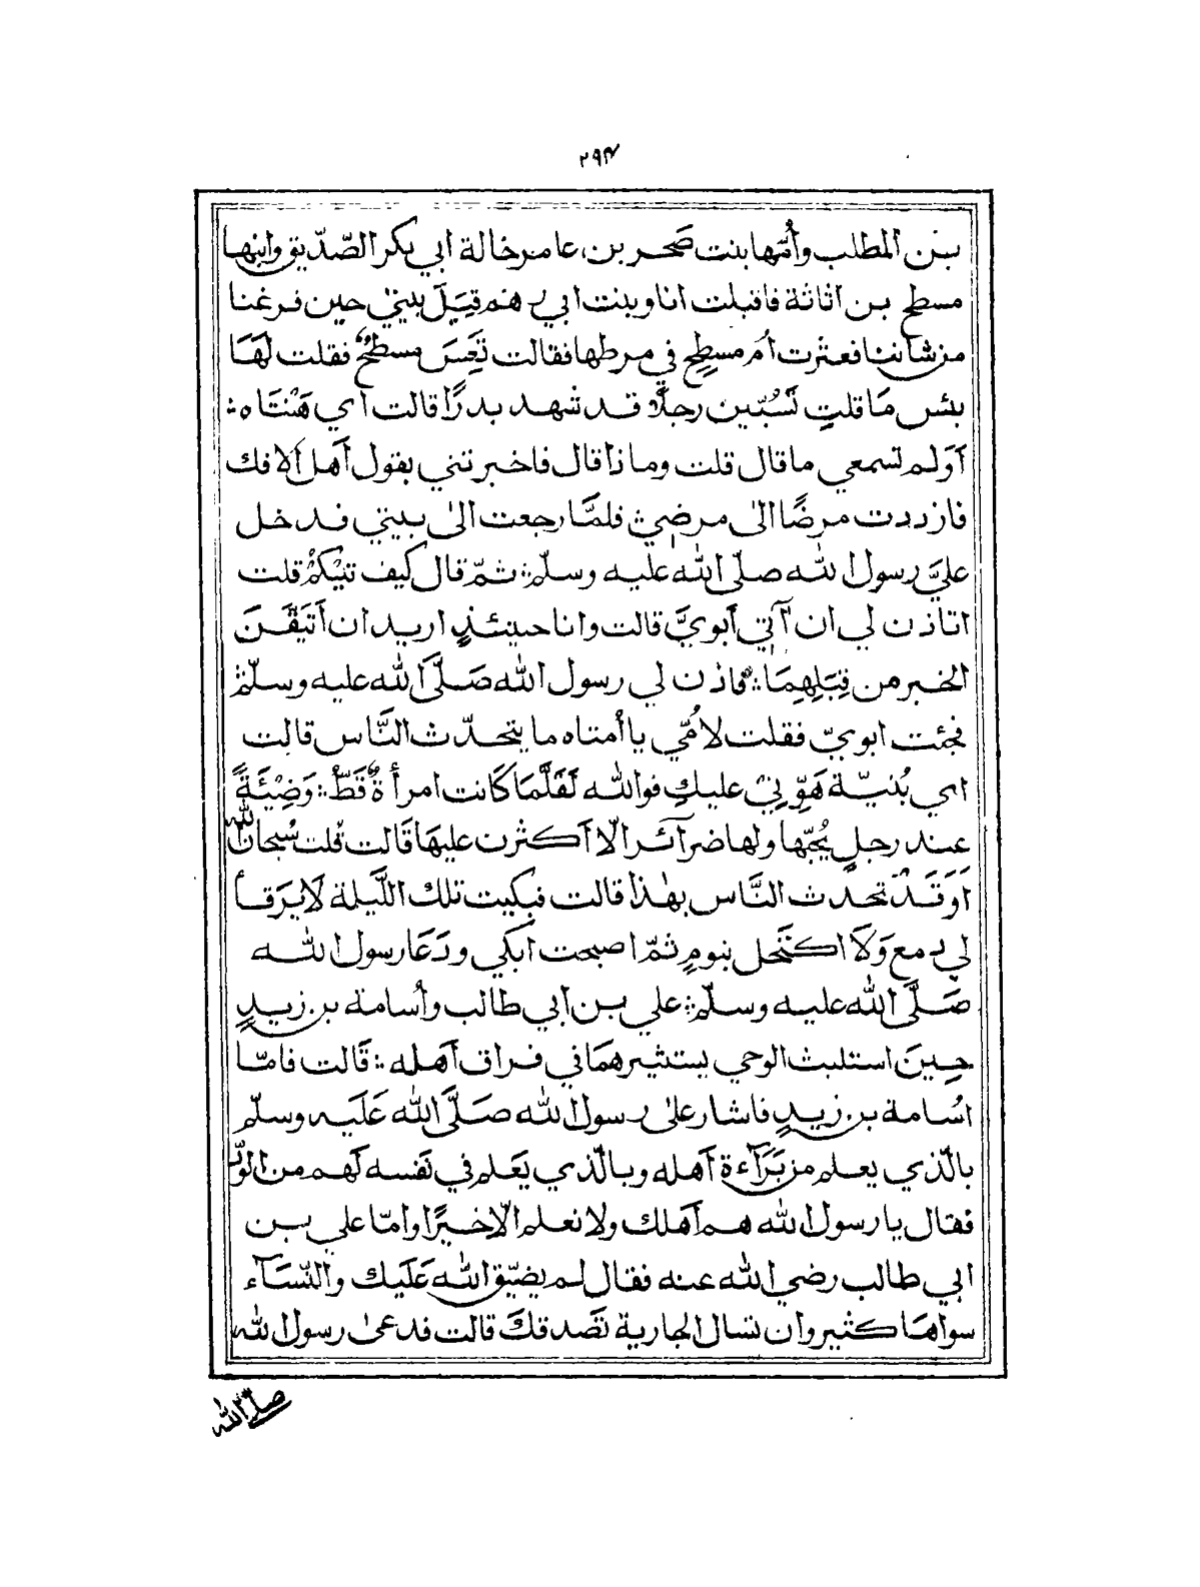 ٢٩٣
بن المطلب وأمّها بنت صخر بن عامر خالة ابي بكر الصّدّيق وابنها
مسطح بن اثاثة فاقبلت انا وبنت ابي رهم قِبَلَ بيتي حين فرغنا
من شاننا فعثرت اُم مسطح في مرطها فقالت تَعِسَ مسطحٌ فقلت لَهَا
بئس مَا قلتِ تَسُبّين رجلًا قد شهد بدرًا قالت اي هَنْتَاه
اَوَلم تسمعي ما قال قلت وماذا قال فاخبرتني بقول اَهل الافك
فازددت مرضًا الىٰ مرضي فلمَّا رجعت الىٰ بيتي فدخل
عليَّ رسول الله صلّى الله عليه وسلّم ثمّ قال كيف تِيْكُمْ قلت
اتاذن لي ان آتي اَبويَّ قالت وانا حينئذٍ اريد ان اَتَيَقَّنَ
الخبر من قِبَلِهِمَا فاذن لي رسول الله صَلَّى الله عليه وسلّم
فجئت ابويّ فقلت لامُّي يا اُمتاه ما يتحدّث النَّاس قالت
اي بُنيّة هَوِّنِيْ عليكِ فوالله لَقَلَّمَا كَانت امرأةٌ قَطُّ وَضِيْئَةً
عند رجلٍ يُحبّها ولها ضرآئر الّا اَكثرن عليهَا قَالت قلت سُبحان الله
اَوَقَدْ تحَدث النَّاس بهٰذا قالت فبكيت تلك اللَّيلة لَا يَرقأ
لي دمع وَلَا اكتَحل بنومٍ ثمّ اصبحت ابكي ودَعَا رسول الله
صَلَّى الله عليه وسلّم علي بن ابي طالب واُسامة بن زيدٍ
حِينَ استلبث الوحي يستشيرهمَا في فراق اَهله قَالت فامّا
اسُامة بن زيدٍ فاشار علىٰ رسول الله صَلَّى الله عَلَيه وسلّم
بالّذي يعلم من بَرَآءة اَهله وبالّذي يَعْلم في نَفسه لَهم من الودّ
فقال يا رسول الله هم اَهلك ولا نعلم الّا خيرًا وامّا علي بن
ابي طالب رضي الله عنه فقال لم يضيّق الله عَلَيك والنّسَآء
سواهَا كثير وان تسال الجارية تَصدقكَ قالت فدعىٰ رسول الله
صلّى الله